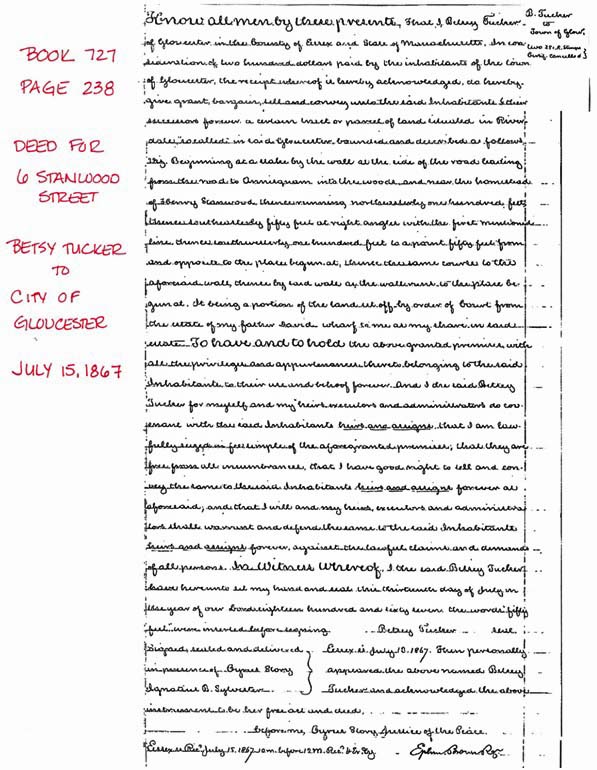 BOOK 727
PAGE 238
DEED FOR
6 STANWOOD
STREET
BETSY TUCKER
TO
CITY OF
GLOUCESTER
JULY 15, 1867
B. Tucker
to
Town of Glou.
Know all men by these presents, That I Betsey Tucker
of Gloucester in the County of Essex and State of Massachusetts. In con
sideration of two hundred dollars paid by the inhabitants of the town
of Gloucester, the receipt whereof is hereby acknowledged, do hereby
give grant, bargain, sell and convey unto the said Inhabitants & their
successors forever a certain tract or parcel of land situated in River
dale, "so called" in said Gloucester bounded and described as follows
viz. Beginning at a stake by the wall at the side of the road leading
from the road to Annisquam into the woods, and near the homestead
of Henry Stanwood thence running northeasterly one hundred feet
thence southeasterly fifty feet at right angles with the first mentioned
line, thence southwesterly one hundred feet to a point fifty feet from
and opposite to the place begun at, thence the same course to the
aforesaid wall, thence by said wall as the wall runs to the place be
gun at. It being a portion of the land set off by order of Court from
the estate of my father David Wharf to me as my share in said
estate. To have and to hold the above granted premises with
all the privileges and appurtenances thereto belonging to the said
Inhabitants to their use and behoof forever. And I the said Betsey
Tucker for myself and my heirs, executors and administrators do cov
enant with the said Inhabitants heirs and assigns, that I am law
fully seized in fee simple of the aforegranted premises; that they are
free from all incumbrances, that I have good right to sell and con
vey the same to the said Inhabitants heirs and assigns forever as
aforesaid; and that I will and my heirs, executors and administra
tors shall warrant and defend the same to the said Inhabitants
heirs and assigns forever, against the lawful claims and demands
of all persons. In Witness Whereof, I the said Betsey Tucker
have hereunto set my hand and seal this thirteenth day of July in
the year of our Lord eighteen hundred and sixty seven. the words "fifty
feet" were inserted before signing. Betsey Tucker seal
Signed, sealed and delivered Essex ss. July 10. 1867. Then personally
in presence of Cyrus Story appeared the above named Betsey
Ignatius B. Sylvester Tucker and acknowledged the above
instrument to be her free act and deed,
before me, Cyrus Story, Justice of the Peace.
Essex ss. Rec'd July 15, 1867 10 m. before 12 M. Rec'd & Ex. by